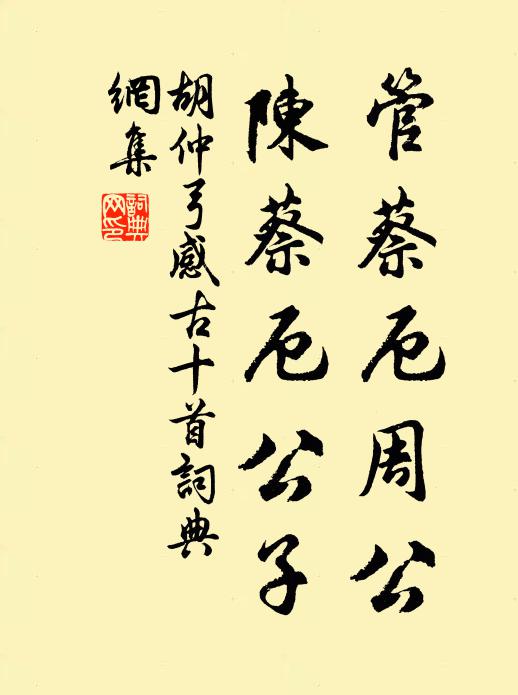 管蔡厄周公
陳蔡厄公子
胡仲弓感古十首詞典
網集
詞典
网印